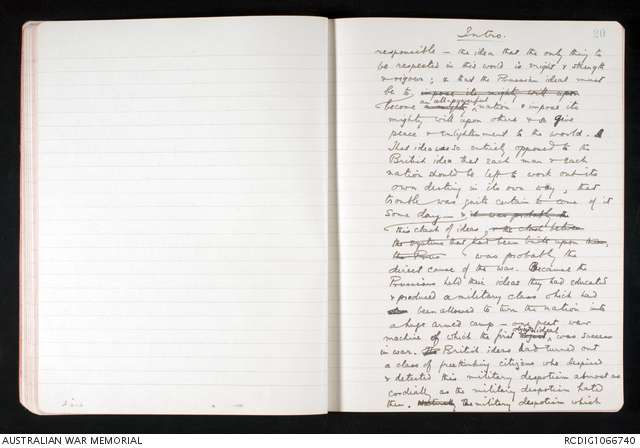 Intro. 20
responsible – the idea that the only thing to
be respected in this world is might & strength
& vigour; & that the Prussian ideal must
be to impose its mighty will upon
become an all-powerful nation & impose its
mighty will upon others & give
peace & enlightenment to the world.
That idea was so entirely opposed to the
British idea that each man & each
nation should be left to work out its
own destiny in its own way, that
trouble was quite certain to come of it
some day – & it was probably
this clash of ideas, & the clash between
the systems that had been built upon
was probably the
direct cause of the war. Because the
Prussians held their ideas they had educated
& produced a military class which had
been allowed to turn the nation into
a huge armed camp – one great war
machine of which the first ideal was success
in war. British ideas had turned out
a class of freethinking citizens who despised
& detested this military despotism almost as
cordially as the military despotism hated
them. the military despotism which
AUSTRALIAN WAR MEMORIAL
RCDIG1066740